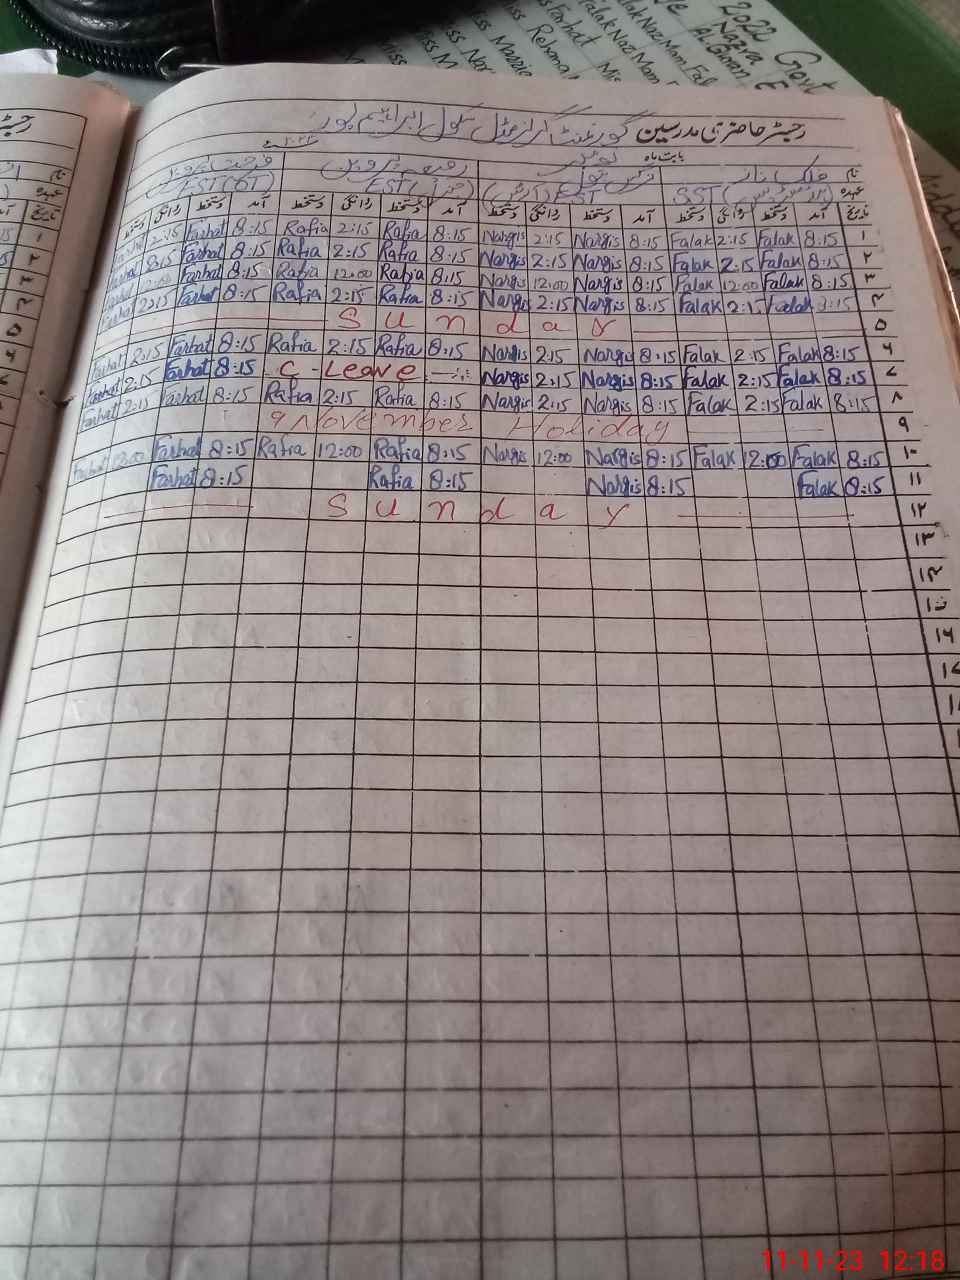 2022 Govt
Nazra
Al Quran
رجسٹر حاضری مدرسین گورنمنٹ گرلز مڈل سکول ابراہیم پور
بابت ماہ نومبر ۲۰۲۳
نام فلک ناز نرگس بتول
عہدہ SST EST EST EST (GT)
تاریخ آمد دستخط روانگی دستخط آمد دستخط روانگی دستخط آمد دستخط روانگی دستخط آمد دستخط روانگی دستخط
۱ 8:15 Falak 2:15 Falak 8:15 Nargis 2:15 Nargis 8:15 Rafia 2:15 Rafia 8:15 Farhat 2:15
۲ 8:15 Falak 2:15 Falak 8:15 Nargis 2:15 Nargis 8:15 Rafia 2:15 Rafia 8:15 Farhat 8:15 Farhat
۳ 8:15 Falak 12:00 Falak 8:15 Nargis 12:00 Nargis 8:15 Rafia 12:00 Rafia 8:15 Farhat 12:00 Farhat
۴ 8:15 Falak 2:15 Falak 8:15 Nargis 2:15 Nargis 8:15 Rafia 2:15 Rafia 8:15 Farhat 2:15 Farhat
۵ Sunday
۶ 8:15 Falak 2:15 Falak 8:15 Nargis 2:15 Nargis 8:15 Rafia 2:15 Rafia 8:15 Farhat 8:15 Farhat
۷ 8:15 Falak 2:15 Falak 8:15 Nargis 2:15 Nargis C-Leave 8:15 Farhat 2:15 Farhat
۸ 8:15 Falak 2:15 Falak 8:15 Nargis 2:15 Nargis 8:15 Rafia 2:15 Rafia 8:15 Farhat 2:15 Farhat
۹ 9 November Holiday
۱۰ 8:15 Falak 12:00 Falak 8:15 Nargis 12:00 Nargis 8:15 Rafia 12:00 Rafia 8:15 Farhat 12:00 Farhat
۱۱ 8:15 Falak 8:15 Nargis 8:15 Rafia 8:15 Farhat
۱۲ Sunday
۱۳
۱۴
۱۵
۱۶
۱۷
11-11-23 12:18